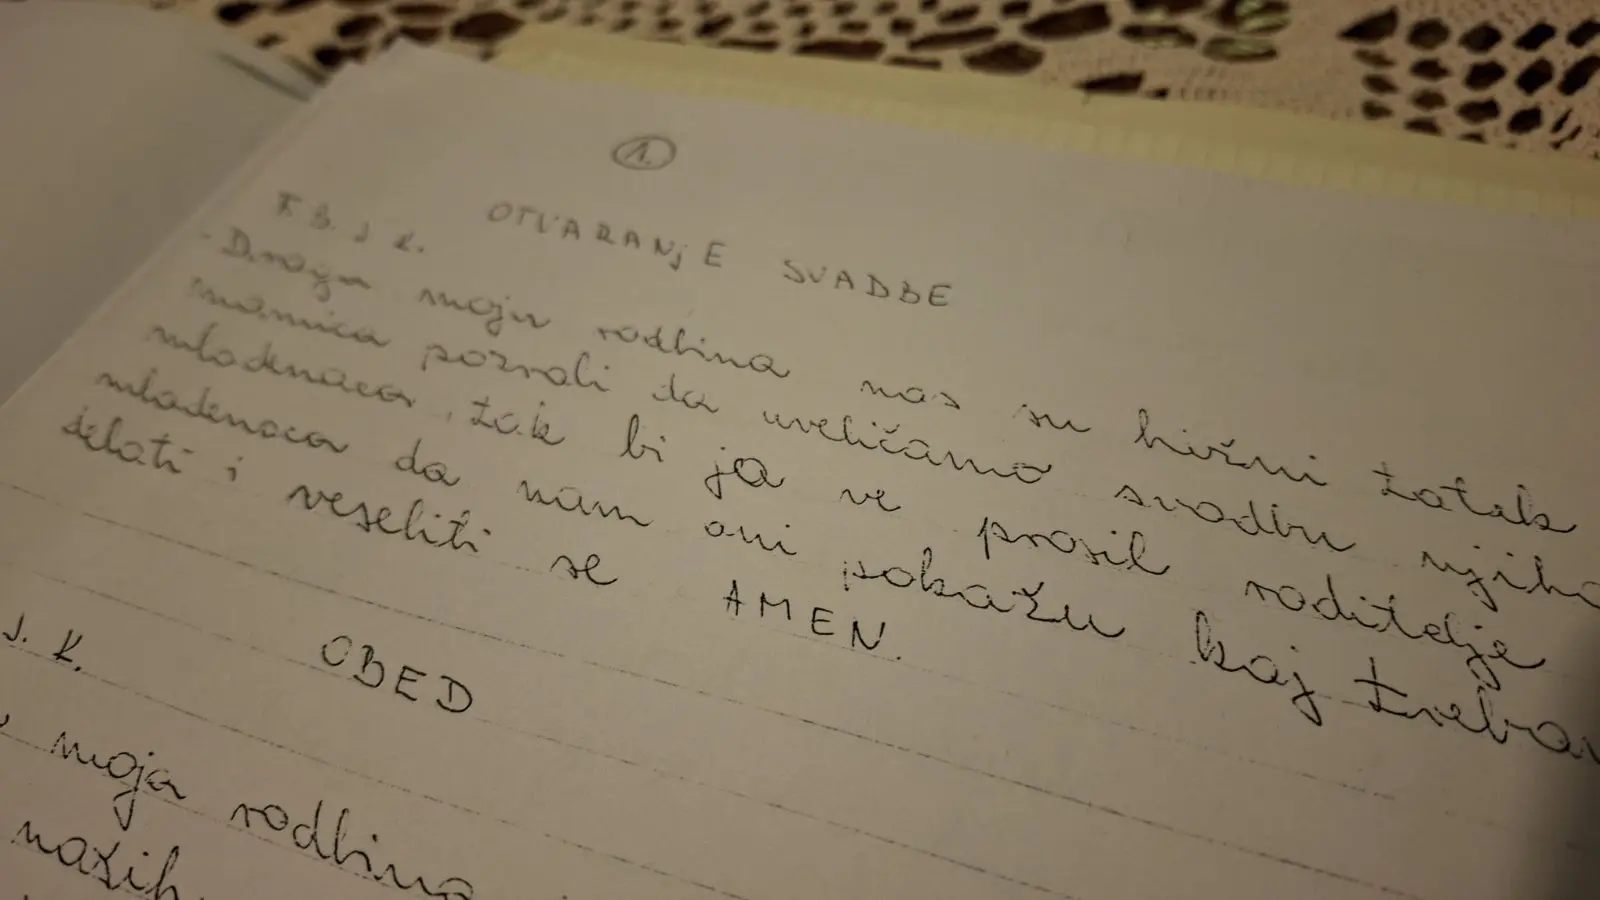 1.
F. B. J. K. OTVARANJE SVADBE
- Draga moja rodbina nas su hižni tatek
mamica pozvali da uveličamo svadbu njiho
mladenaca, tak bi ja ve prosil roditelje
mladenaca da nam oni pokažu kaj treba
delati i veseliti se AMEN.
J. K. OBED
moja rodbina
naših